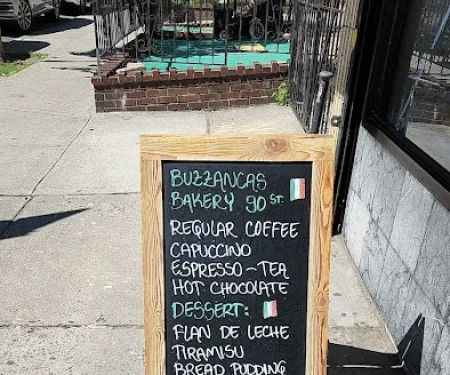 BUZZANCAS
BAKERY 90 ST.
REGULAR COFFEE
CAPUCCINO
ESPRESSO - TEA
HOT CHOCOLATE
DESSERT:
FLAN DE LECHE
TIRAMISU
BREAD PUDDING